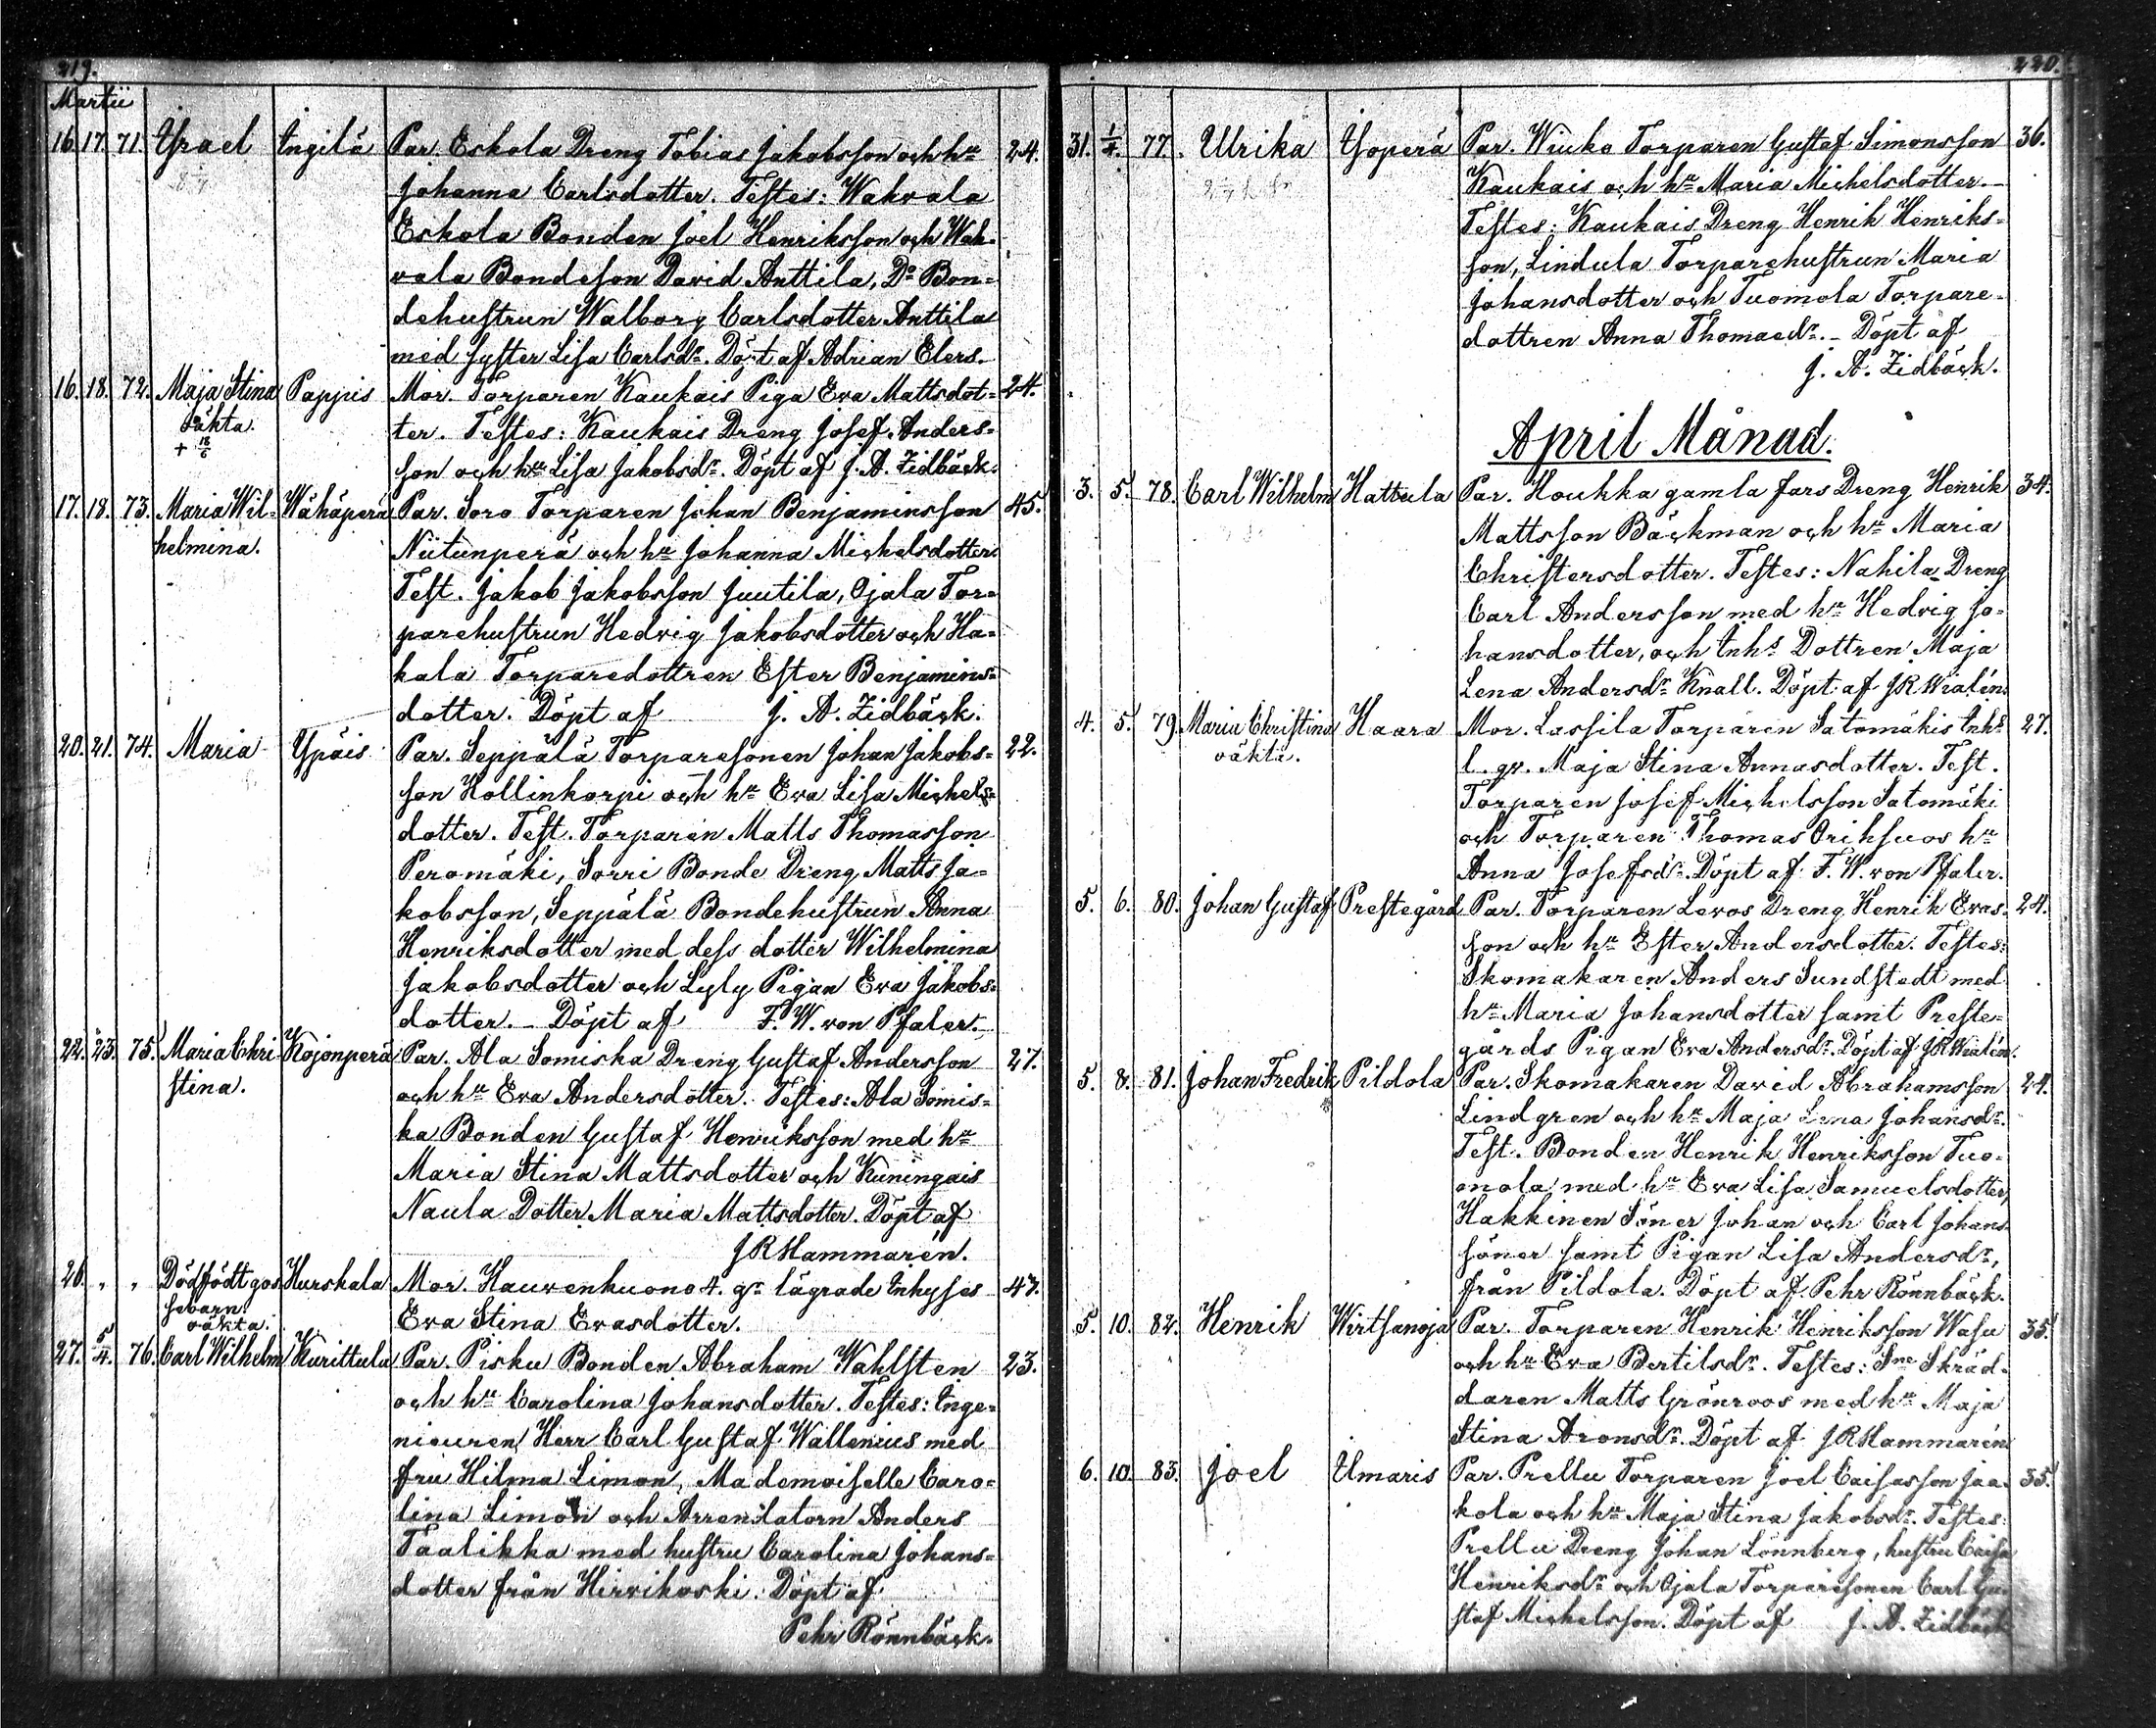 219.
Martii
16. 17. 71. Israel Ingilä Par. Eskola Dreng Tobias Jakobsson och hu 24.
Johanna Carlsdotter. Testes: Wakvala
Eskola Bonden Joel Henriksson och Wak-
vala Bondeson David Anttila, Do Bon-
dehustrun Walborg Carlsdotter Anttila
med syster Lisa Carlsdr. Döpt af Adrian Elers.
16. 18. 72. Maja Stina Pappis Mor. Torparen Kaukais Piga Eva Mattsdot- 24.
oäkta. ter. Testes: Kaukais Dreng Josef Anders-
+ 18/6 son och hu Lisa Jakobsdr. Döpt af J. A. Zidbäck.
17. 18. 73. Maria Wil- Wähäperä Par. Soro Torparen Johan Benjaminsson 45.
helmina. Niitunperä och hu Johanna Michelsdotter
Test. Jakob Jakobsson Juutila, Ojala Tor-
parehustrun Hedvig Jakobsdotter och Ha-
kala Torparedottren Ester Benjamins-
dotter. Döpt af J. A. Zidbäck.
20. 21. 74. Maria Ypäis Par. Seppälä Torparesonen Johan Jakobs- 22.
son Kollinkorpi och hu Eva Lisa Michels-
dotter. Test. Torparen Matts Thomasson
Peromäki, Sorri Bonde Dreng Matts Ja-
kobsson, Seppälä Bondehustrun Anna
Henriksdotter med dess dotter Wilhelmina
Jakobsdotter och Lyly Pigan Eva Jakobs-
dotter. Döpt af F. W. von Pfaler.
22. 23. 75. Maria Chri- Kojonperä Par. Ala Somiska Dreng Gustaf Andersson 27.
stina. och hu Eva Andersdotter. Testes: Ala Somis-
ka Bonden Gustaf Henriksson med hu
Maria Stina Mattsdotter och Kuningais
Naula Dotter Maria Mattsdotter. Döpt af
JR Hammarén.
26. " " Dödfödt gos- Hurskala Mor. Hauvenkuono 4. gr lägrade Inhyses 47.
sebarn. Eva Stina Evasdotter.
oäkta.
27. 5/4. 76. Carl Wilhelm Kurittula Par. Pisku Bonden Abraham Wahlsten 23.
och hu Carolina Johansdotter. Testes: Inge-
nieuren Herr Carl Gustaf Wallenius med
fru Hilma Limon, Mademoiselle Caro-
lina Limon och Arrendatorn Anders
Taalikka med hustru Carolina Johans-
dotter från Hirvikoski. Döpt af
Pehr Rönnbäck.
220.
31. 1/4. 77. Ulrika Isoperä Par. Wiuka Torparen Gustaf Simonsson 36.
Kaukais och hu Maria Michelsdotter.
Testes: Kaukais Dreng Henrik Henriks-
son, Lindula Torparehustrun Maria
Johansdotter och Tuomola Torpare-
dottren Anna Thomaedr. Döpt af
J. A. Zidbäck.
April Månad.
3. 5. 78. Carl Wilhelm Hattula Par. Houkka gamla fars Dreng Henrik 34.
Mattsson Bäckman och hu Maria
Christersdotter. Testes: Nahila Dreng
Carl Andersson med hu Hedvig Jo-
hansdotter, och Inhs Dottren Maja
Lena Andersdr Knall. Döpt af JR Wialén.
4. 5. 79. Maria Christina Haara Mor. Lassila Torparen Satomäkis Inhs 27.
oäkta. l. gr. Maja Stina Annasdotter. Test.
Torparen Josef Michelsson Satomäki
och Torparen Thomas Orihsuos hu
Anna Josefsdr. Döpt af F. W. von Pfaler.
5. 6. 80. Johan Gustaf Prestegård Par. Torparen Levos Dreng Henrik Evas- 24.
son och hu Ester Andersdotter. Testes:
Skomakaren Anders Sundstedt med
hu Maria Johansdotter samt Preste-
gårds Pigan Eva Andersdr. Döpt af JR Wialén.
5. 8. 81. Johan Fredrik Pildola Par. Skomakaren David Abrahamsson 24.
Lindgren och hu Maja Lena Johansdr.
Test. Bonden Henrik Henriksson Tuo-
mola med hu Eva Lisa Samuelsdotter,
Hakkinen Söner Johan och Carl Johans
söner samt Pigan Lisa Andersdr,
från Pildola. Döpt af Pehr Rönnbäck.
5. 10. 82. Henrik Wirtsanoja Par. Torparen Henrik Henriksson Wasu 35.
och hu Eva Bertilsdr. Testes: Sne Skräd-
daren Matts Grönroos med hu Maja
Stina Aronsdr. Döpt af JR Hammarén
6. 10. 83. Joel Ilmaris Par. Prellu Torparen Joel Caisasson Jaa- 35.
kola och hu Maja Stina Jakobsdr. Testes:
Prellu Dreng Johan Lönnberg, hustru Caisa
Henriksdr och Ojala Torparesonen Carl Gu-
staf Michelsson. Döpt af J. A. Zidbäck